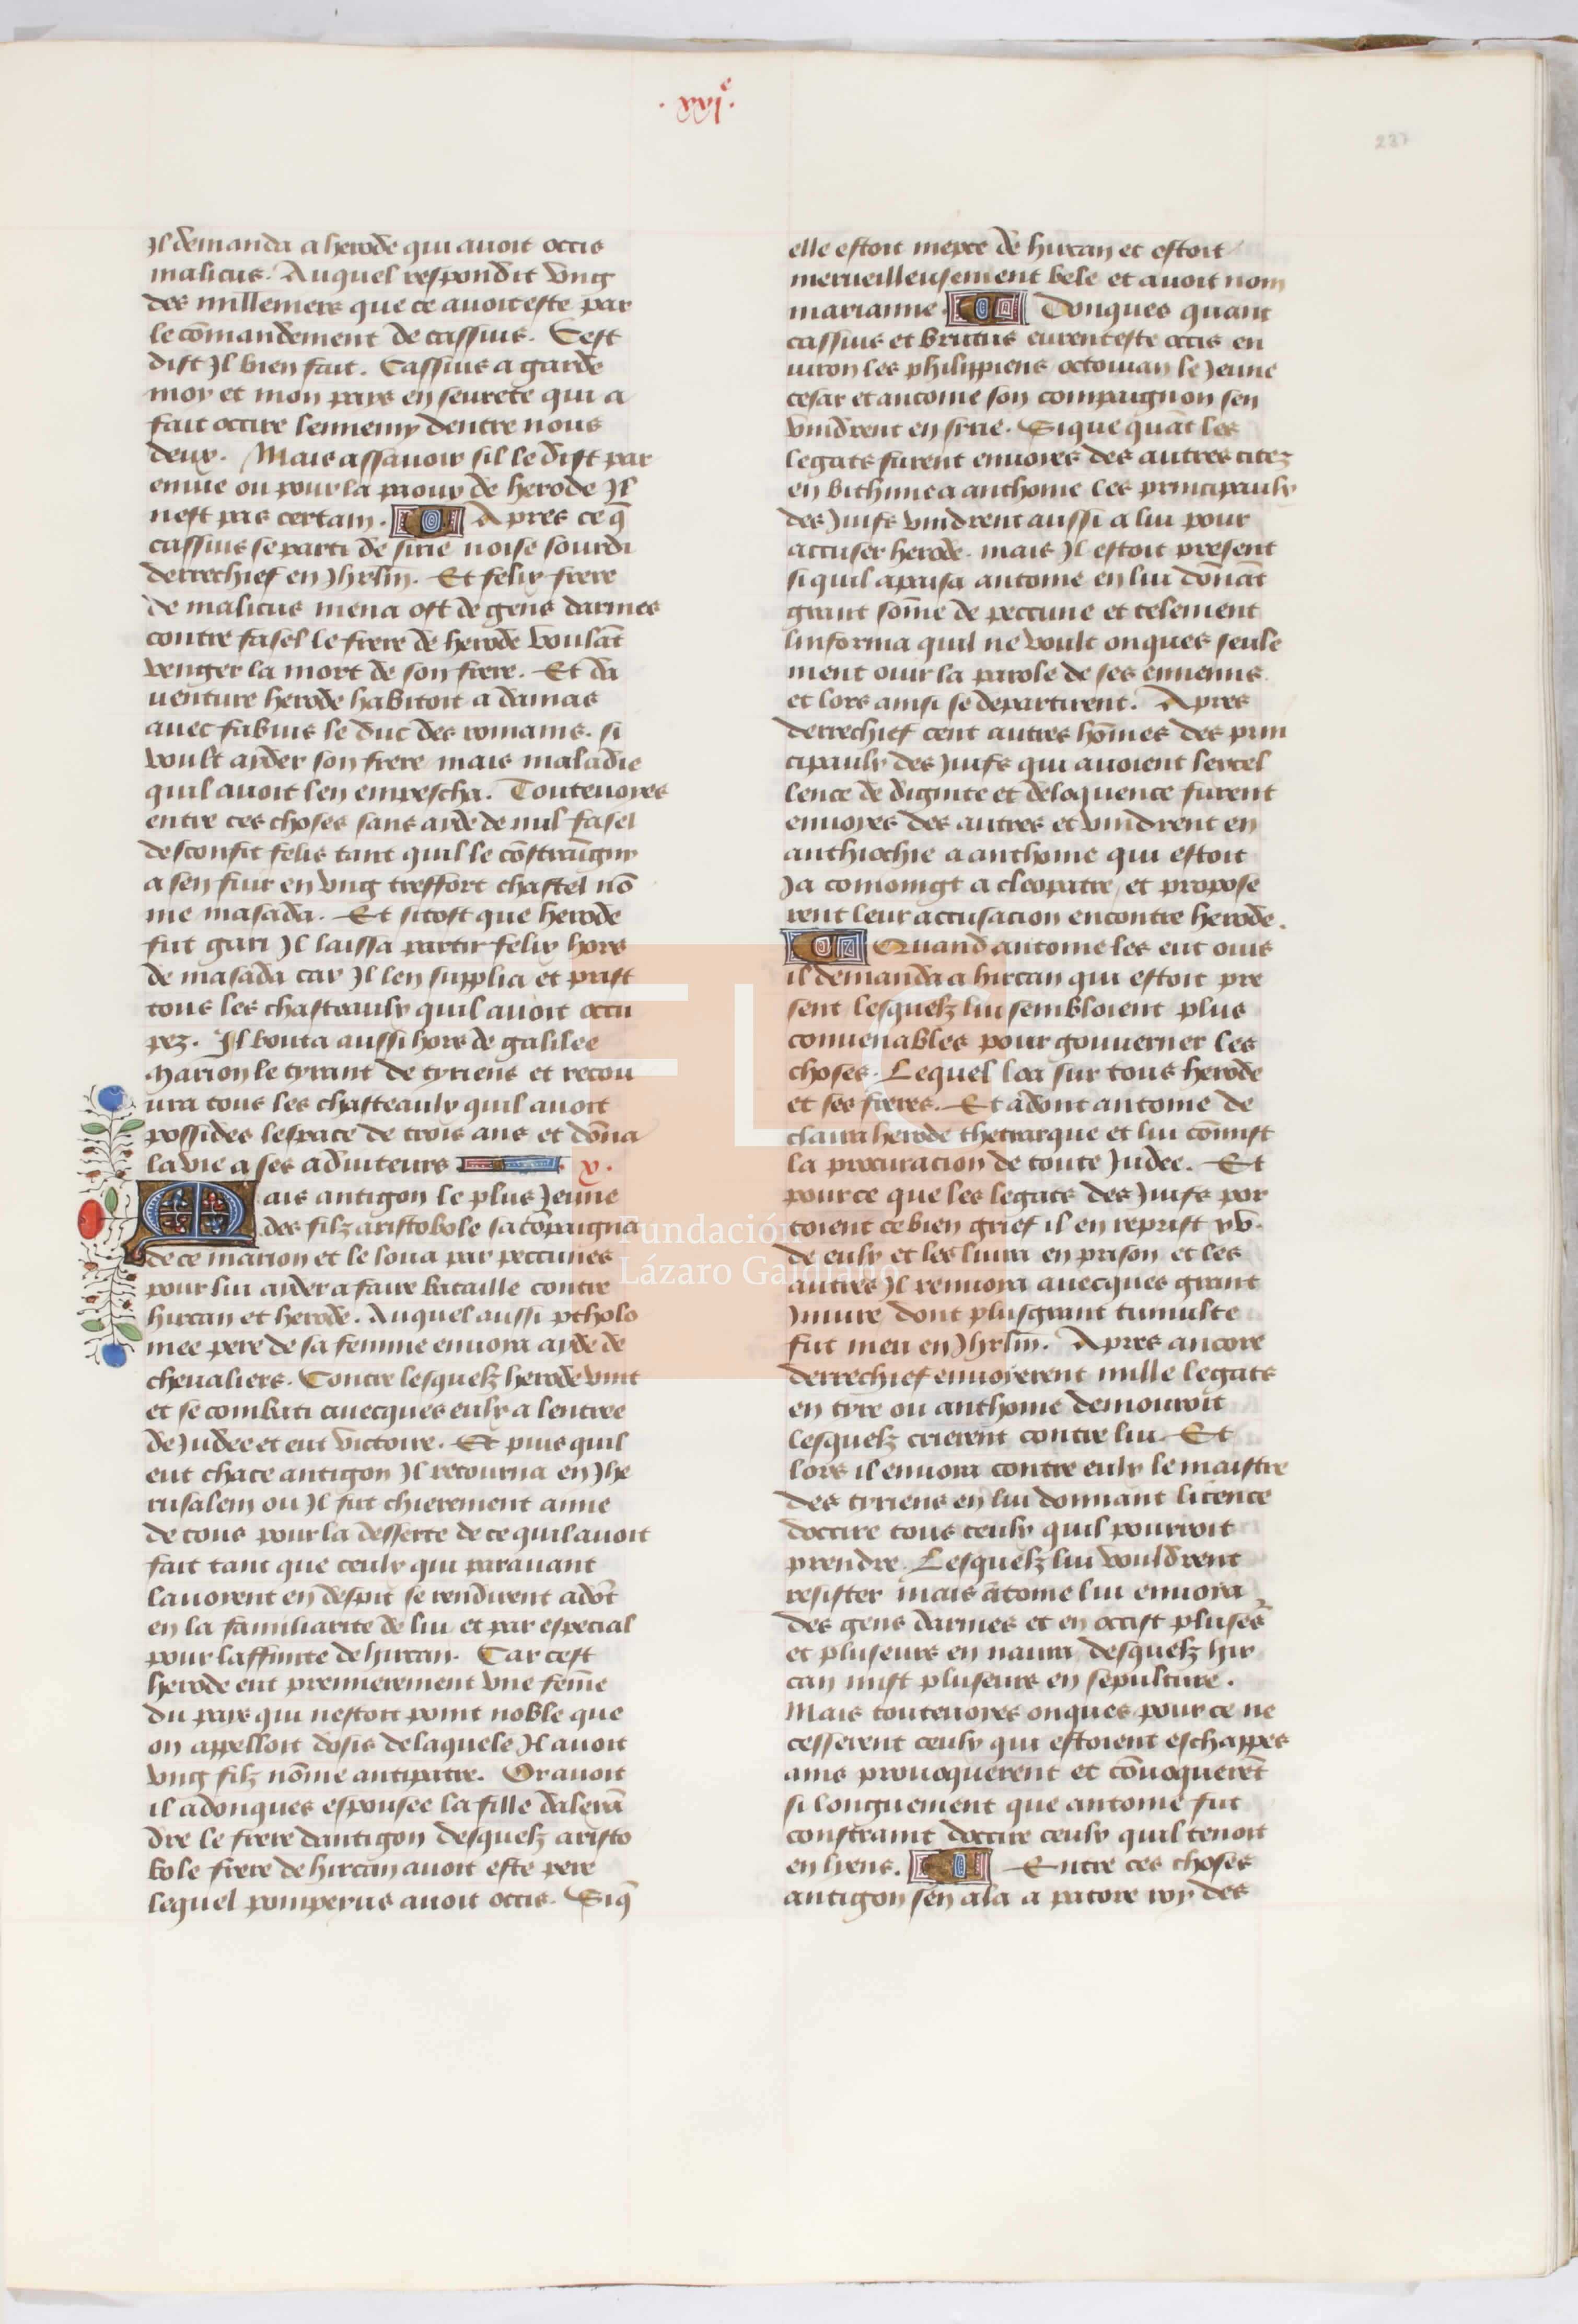 .xxjᵉ.
237
Jl demanda a herode qui auoit occis
malicus. Auquel respondit vng
des millemers que ce auoit este par
le cōmandement de cassius. Cest
dist Jl bien fait. Cassius a garde
moy et mon pays en seurete qui a
fait occire lennemy dentre nous
deux. Mais assauoir sil le dist par
enuie ou pour la paour de herode Jl
nest pas certain. Apres ce q̄
cassius se parti de sirie noise sourdi
derrechief en Jhrlm̄. Et felix frere
de malicus mena ost de gens darmes
contre fasel le frere de herode voulāt
venger la mort de son frere. Et da
uenture herode habitoit a damas
auec fabius le duc des romains. si
voult aider son frere mais maladie
quil auoit len empescha. Toutenoyes
entre ces choses sans aide de nul fasel
desconfit felis tant quil le cōstraigny
a sen fuir en vng tresfort chastel nō
me masada. Et sitost que herode
fut gari Jl laissa partir felix hors
de masada car Jl len supplia et prist
tous les chasteaulx quil auoit occu
pez. Jl bouta aussi hors de galilee
marion le tyrant de tyriens et recou
ura tous les chasteaulx quil auoit
possides lespace de trois ans et dōna
la vie a ses aduiteurs x.
Mais antigon le plus Jeune
des filz aristobole sacōpaigna
de ce marion et le loua par peccunes
pour lui aider a faire bataille contre
hircan et herode. Auquel aussi ptholo
mee pere de sa femme enuoya ayde de
cheualiers. Contre lesquelz herode vint
et se combati auecques eulx a lentree
de Judee et eut victoire. Et puis quil
eut chace antigon Jl retourna en Jhe
rusalem ou Jl fut chierement aime
de tous pour la desserte de ce quil auoit
fait tant que ceulx qui parauant
lauoient en despit se rendirent adōt
en la familiarite de lui et par especial
pour laffinite de hircan. Car cest
herode eut premierement vne fēme
du pays qui nestoit point noble que
on appelloit dosis de laquele Jl auoit
vng filz nōme antipatre. Or auoit
il adonques espousee la fille dalexā
dre le frere dantigon desquelz aristo
bole frere de hircan auoit este pere
lequel pompeyus auoit occis. Siq̄
elle estoit niepce de hircan et estoit
merueilleusement bele et auoit nom
marianne. Donques quant
cassius et brutus eurent este occis en
uiron les philippiens octouian le Jeune
cesar et antoine son compaignon sen
vindrent en sirie. Sique quāt les
legats furent enuoyes des autres citez
en bithinie a anthoine les principaulx
des Juifs vindrent aussi a lui pour
accuser herode. mais Jl estoit present
si quil apaisa antoine en lui dōnāt
grant sōme de peccune et telement
linforma quil ne voult onques seule
ment ouir la parole de ses ennemis
et lors ainsi se departirent. Apres
derrechief cent autres hōmes des prin
cipaulx des Juifs qui auoient lexcel
lence de dignite et deloquence furent
enuoyes des autres et vindrent en
anthiochie a anthoine qui estoit
Ja comoingt a cleopatre, et propose
rent leur accusacion encontre herode.
Quand antoine les eut ouis
il demanda a hircan qui estoit pre
sent lesquelz lui sembloient plus
conuenables pour gouuerner les
choses. Lequel loa sur tous herode
et ses freres. Et adont antoine de
claira herode thetrarque et lui cōmist
la procuracion de toute Judee. Et
pource que les legats des Juifs por
toient ce bien grief il en reprist xv.
de eulx et les liura en prison et les
autres Jl renuoya auecques grant
Jniure dont plusgrant tumulte
fut meu en Jhrlm̄. Apres ancore
derrechief enuoyerent mille legats
en tyre ou anthoine demouroit
lesquelz crierent contre lui. Et
lors il enuoya contre eulx le maistre
des tyriens en lui donnant licence
doccire tous ceulx quil pourroit
prendre. Lesquelz lui vouldrent
resister mais ātoine lui enuoya
des gens darmes et en occist plusēs
et pluseurs en naura, desquelz hir
can mist pluseurs en sepulture.
Mais toutenoyes onques pour ce ne
cesserent ceulx qui estoient eschappes
ains prouoquerent et cōuoquerēt
si longuement que antoine fut
constraint doccire ceulx quil tenoit
en lyens. Entre ces choses
antigon sen ala a patore roy des
FLG
Fundación
Lázaro Galdiano